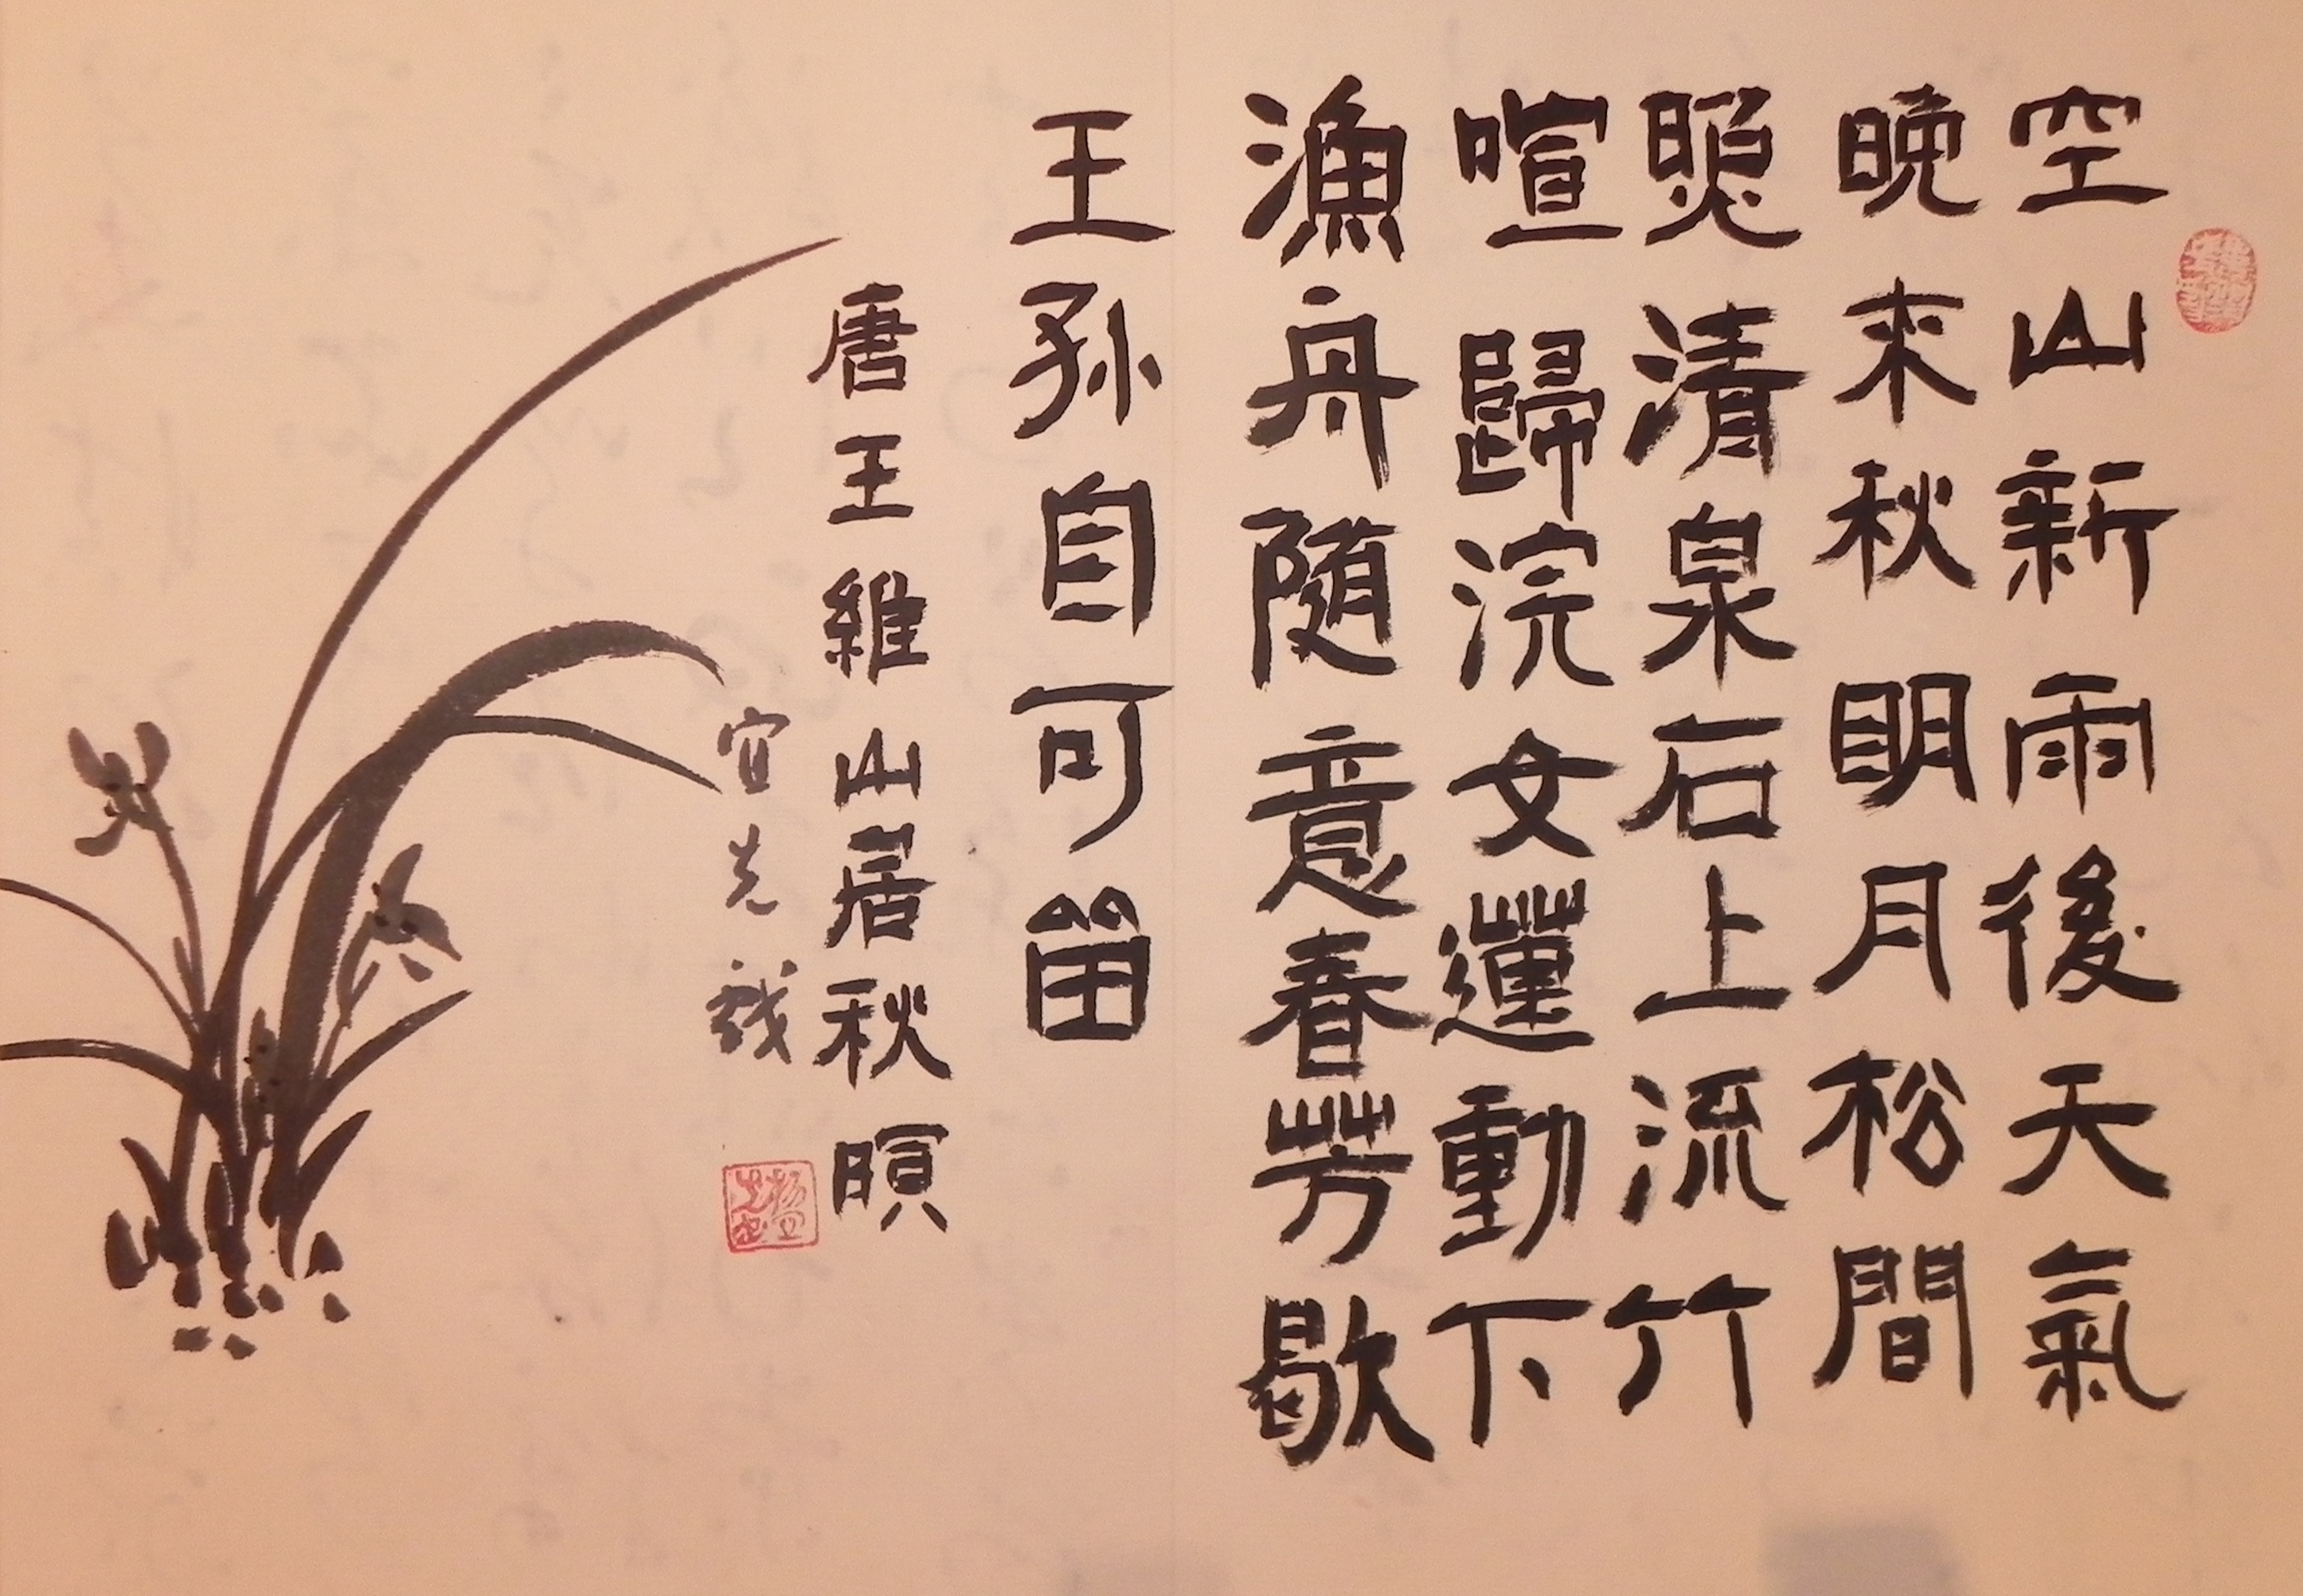 空山新雨後天氣
晚来秋眀月松間
照清泉石上流竹
喧歸浣女蓮動下
漁舟随意春芳歇
王孙自可留
唐王維山居秋暝
宜先戯